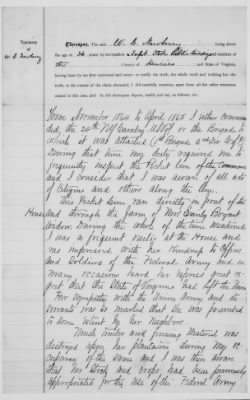 Testimony
of
W. C. Newberry
Thereupon, The said W. C. Newberry being about
the age of 36 years, by occupation Supt. State Public Buildings residents of
this County of Henrico and State of Virginia,
having been by me first convened and sworn to testify the truth, the whole truth and nothing but the
truth, in the matter of the claim aforesaid, I did carefully examine apart from all the other witnesses
named in this case, and he did thereupon depose, testify and say, as follows, viz:
From November 1864 to April 1865 I either comman
ded the 24th NY Cavalry or the Brigade to
which it was attached (1st Brigade 2nd Div
During that time my duty required me to
frequently inspect the Picket line of the command
and I consider that I was aware of all acts
of Citizens and others along the line.
This Picket line ran directly in front of the
House and through the farm of Mrs Bryant
widow. During the whole of the time mentioned
I was a frequent visitor at the House and
was impressed with her kindness to Officers
and Soldiers of the Federal Army and on
many occasions heard her express great re
gret that the State of Virginia had left the Union
Her sympathy with the Union Army and its
was so marked that she was
to some extent by her Neighbors
Much timber and fencing Material was
destroyed upon her plantation during My oc
cupancy of the Same and I was then aware
that her Stock and crops had been previously
appropriated for the use of the Federal Army